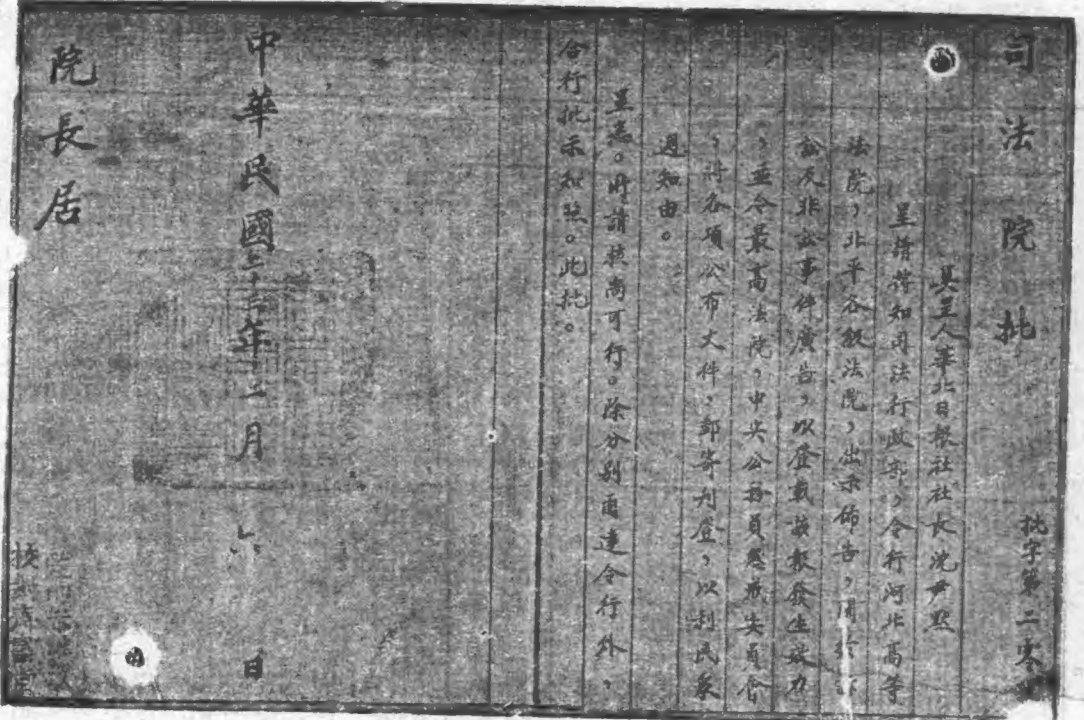 司法院批
批字第二零
具呈人華北日報社社長沈尹默
呈請符知司法行政部，令行河北高等
法院，北平各級法院，出示佈告，關於訴
訟及非訟事件廣告，以登載該報發生效力
，並令最高法院，中央公務員懲戒委員會
，將各項公布文件，郵寄刊登，以利民眾
週知由。
呈悉。所請核尚可行。除分別函達令行外，
合行批示知照。此批。
中華民國二十年十二月六日
院長居
校對